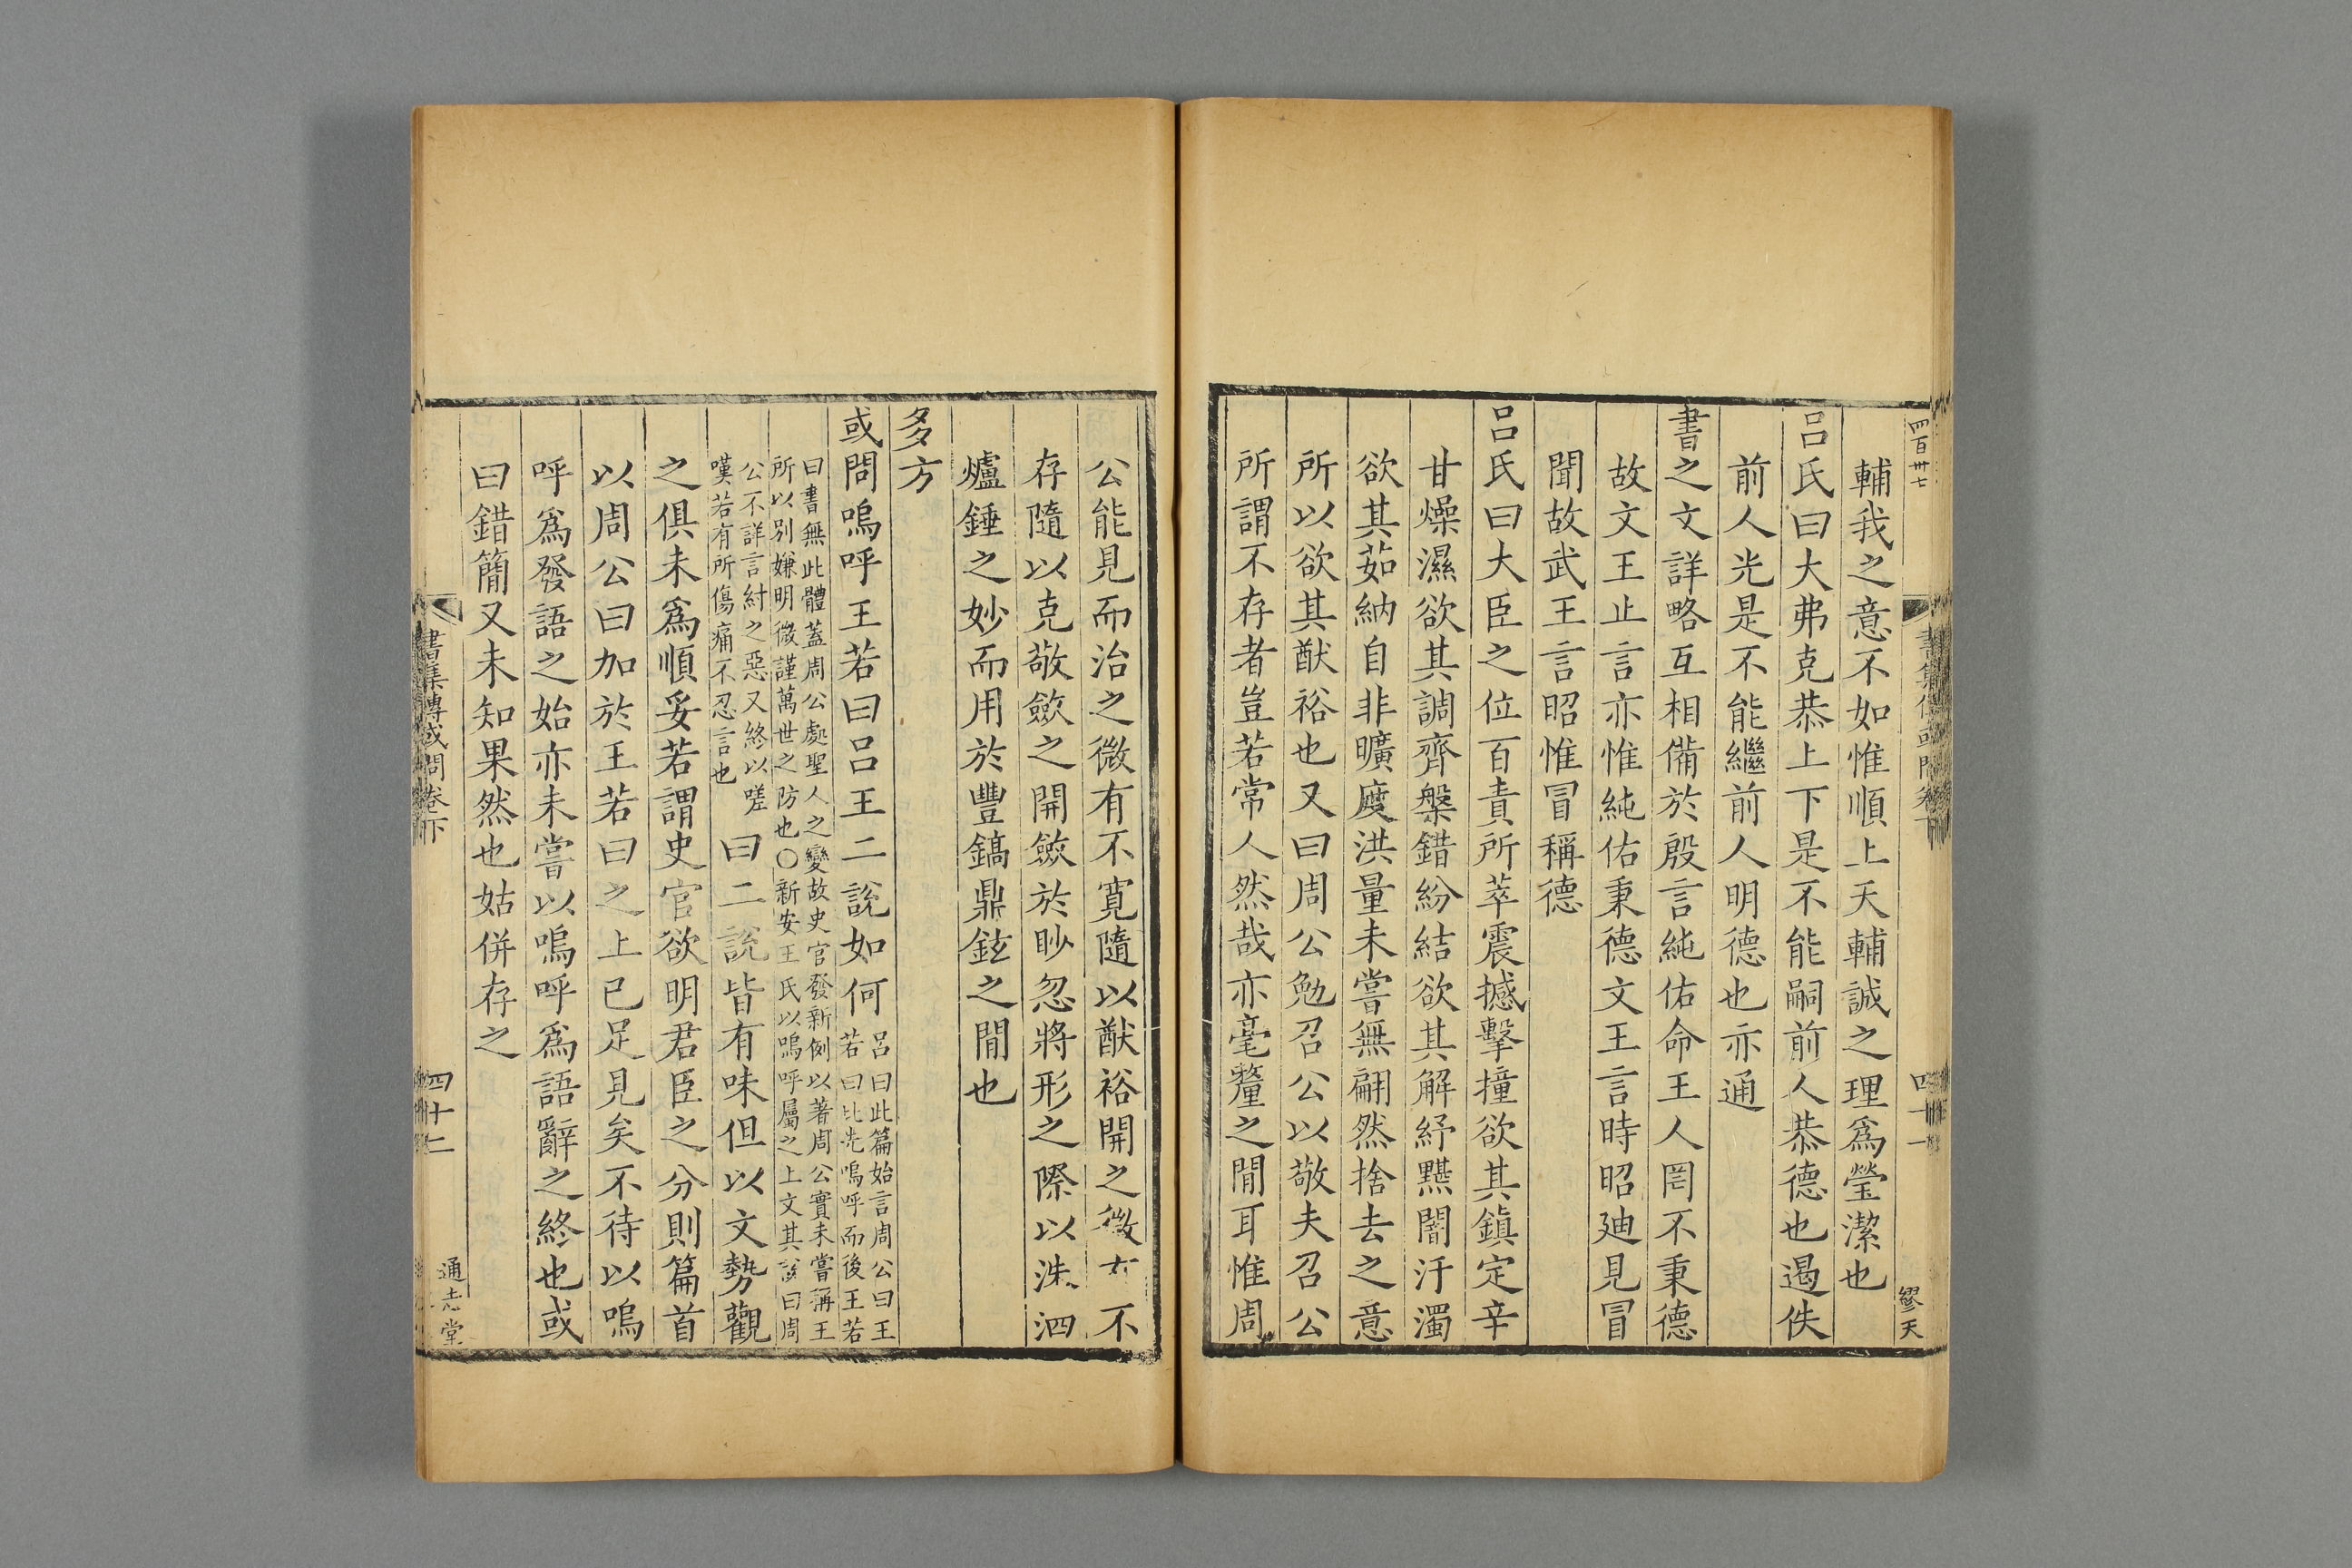 四百卅七
四十一
繆天
輔我之意不如惟順上天輔誠之理爲瑩潔也
呂氏曰大弗克恭上下是不能嗣前人恭德也遏佚
前人光是不能繼前人明德也亦通
書之文詳略互相備於殷言純佑命王人罔不秉德
故文王止言亦惟純佑秉德文王言時昭迪見冒
聞故武王言昭惟冒稱德
呂氏曰大臣之位百責所萃震撼擊撞欲其鎮定辛
甘燥濕欲其調齊槃錯紛結欲其解紓黮闇汙濁
欲其茹納自非曠度洪量未嘗無翩然捨去之意
所以欲其猷裕也又曰周公勉召公以敬夫召公
所謂不存者豈若常人然哉亦毫釐之閒耳惟周
公能見而治之微有不寬隨以猷裕開之微有不
存隨以克敬斂之開斂於眇忽將形之際以洙泗
爐錘之妙而用於豐鎬鼎鉉之閒也
多方
或問嗚呼王若曰呂王二說如何呂曰此篇始言周公曰王
若曰此先嗚呼而後王若
曰書無此體蓋周公處聖人之變故史官發新例以著周公實未嘗稱王
所以別嫌明微謹萬世之防也○新安王氏以嗚呼屬之上文其說曰周
公不詳言紂之惡又終以嗟
嘆若有所傷痛不忍言也曰二說皆有味但以文勢觀
之俱未爲順妥若謂史官欲明君臣之分則篇首
以周公曰加於王若曰之上已足見矣不待以嗚
呼爲發語之始亦未嘗以嗚呼爲語辭之終也或
曰錯簡又未知果然也姑併存之
書集傳或問卷下
四十二
通志堂